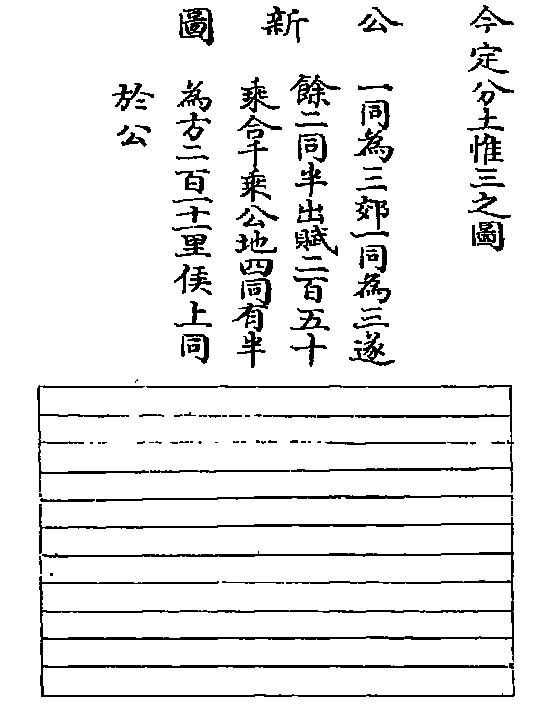 今定分土惟三之圖
公新圖
一同為三郊一同為三遂
餘二同半出賦二百五十
乘合千乘公地四同有半
為方二百一十一里侯上同
於公